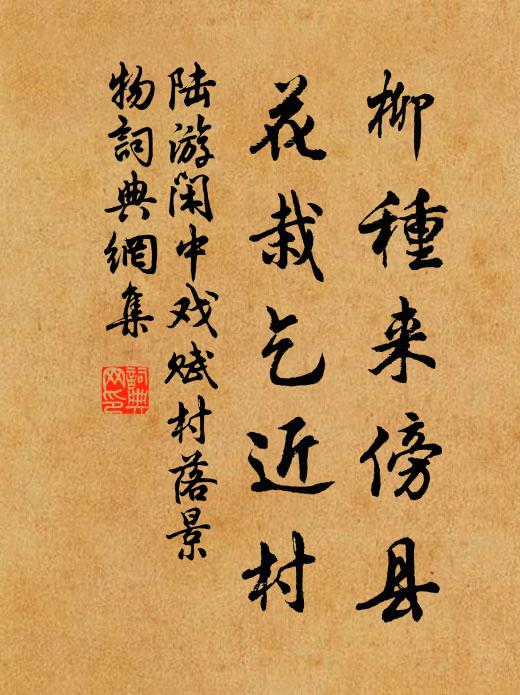 柳種来傍县
花栽乞近村
陆游闲中戏赋村落景
物詞典網集
詞典网印